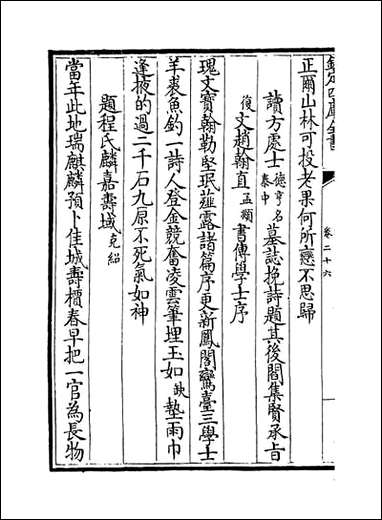 欽定四庫全書
卷二十六
正爾山林可投老果何所戀不思歸
讀方處士德亨名泰中墓誌挽詩題其後閣集賢承旨
復文趙翰直孟頫書傳學士序
瑰文寶翰勒堅珉薤露諸篇序更新鳳閣鸞臺三學士
羊裘魚釣一詩人登金競奮凌雲筆埋玉如缺墊雨巾
逢掖的過二千石九原不死氣如神
題程氏麟嘉壽域克紹
當年此地瑞麒麟預卜佳城壽櫝春早把一官為長物